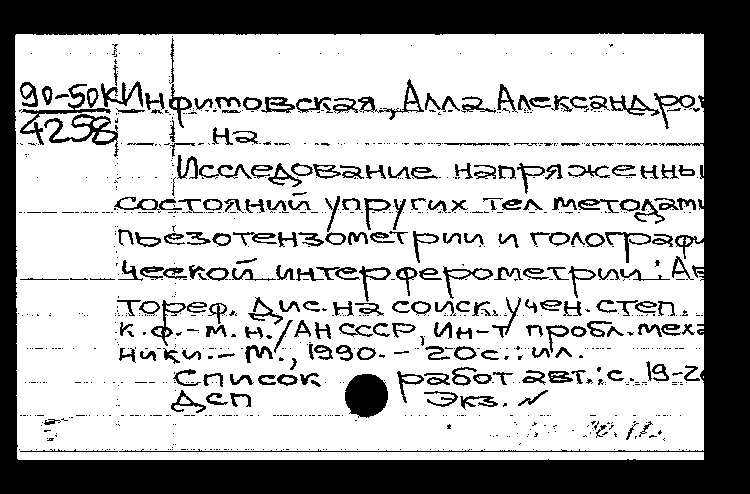 90-50К Инфитовская, Алла Александров
4258 на.
Исследование напряженны
состояний упругих тел методами
пьезотензометрии и голографи
ческой интерферометрии : Ав
тореф. Дис. на соиск. учен. степ.
к.ф.-м.н. / АН СССР, Ин-т пробл. меха
ники. - М., 1990. - 20с. : ил.
Список работ авт.: с. 19-20
ДСП Экз. N